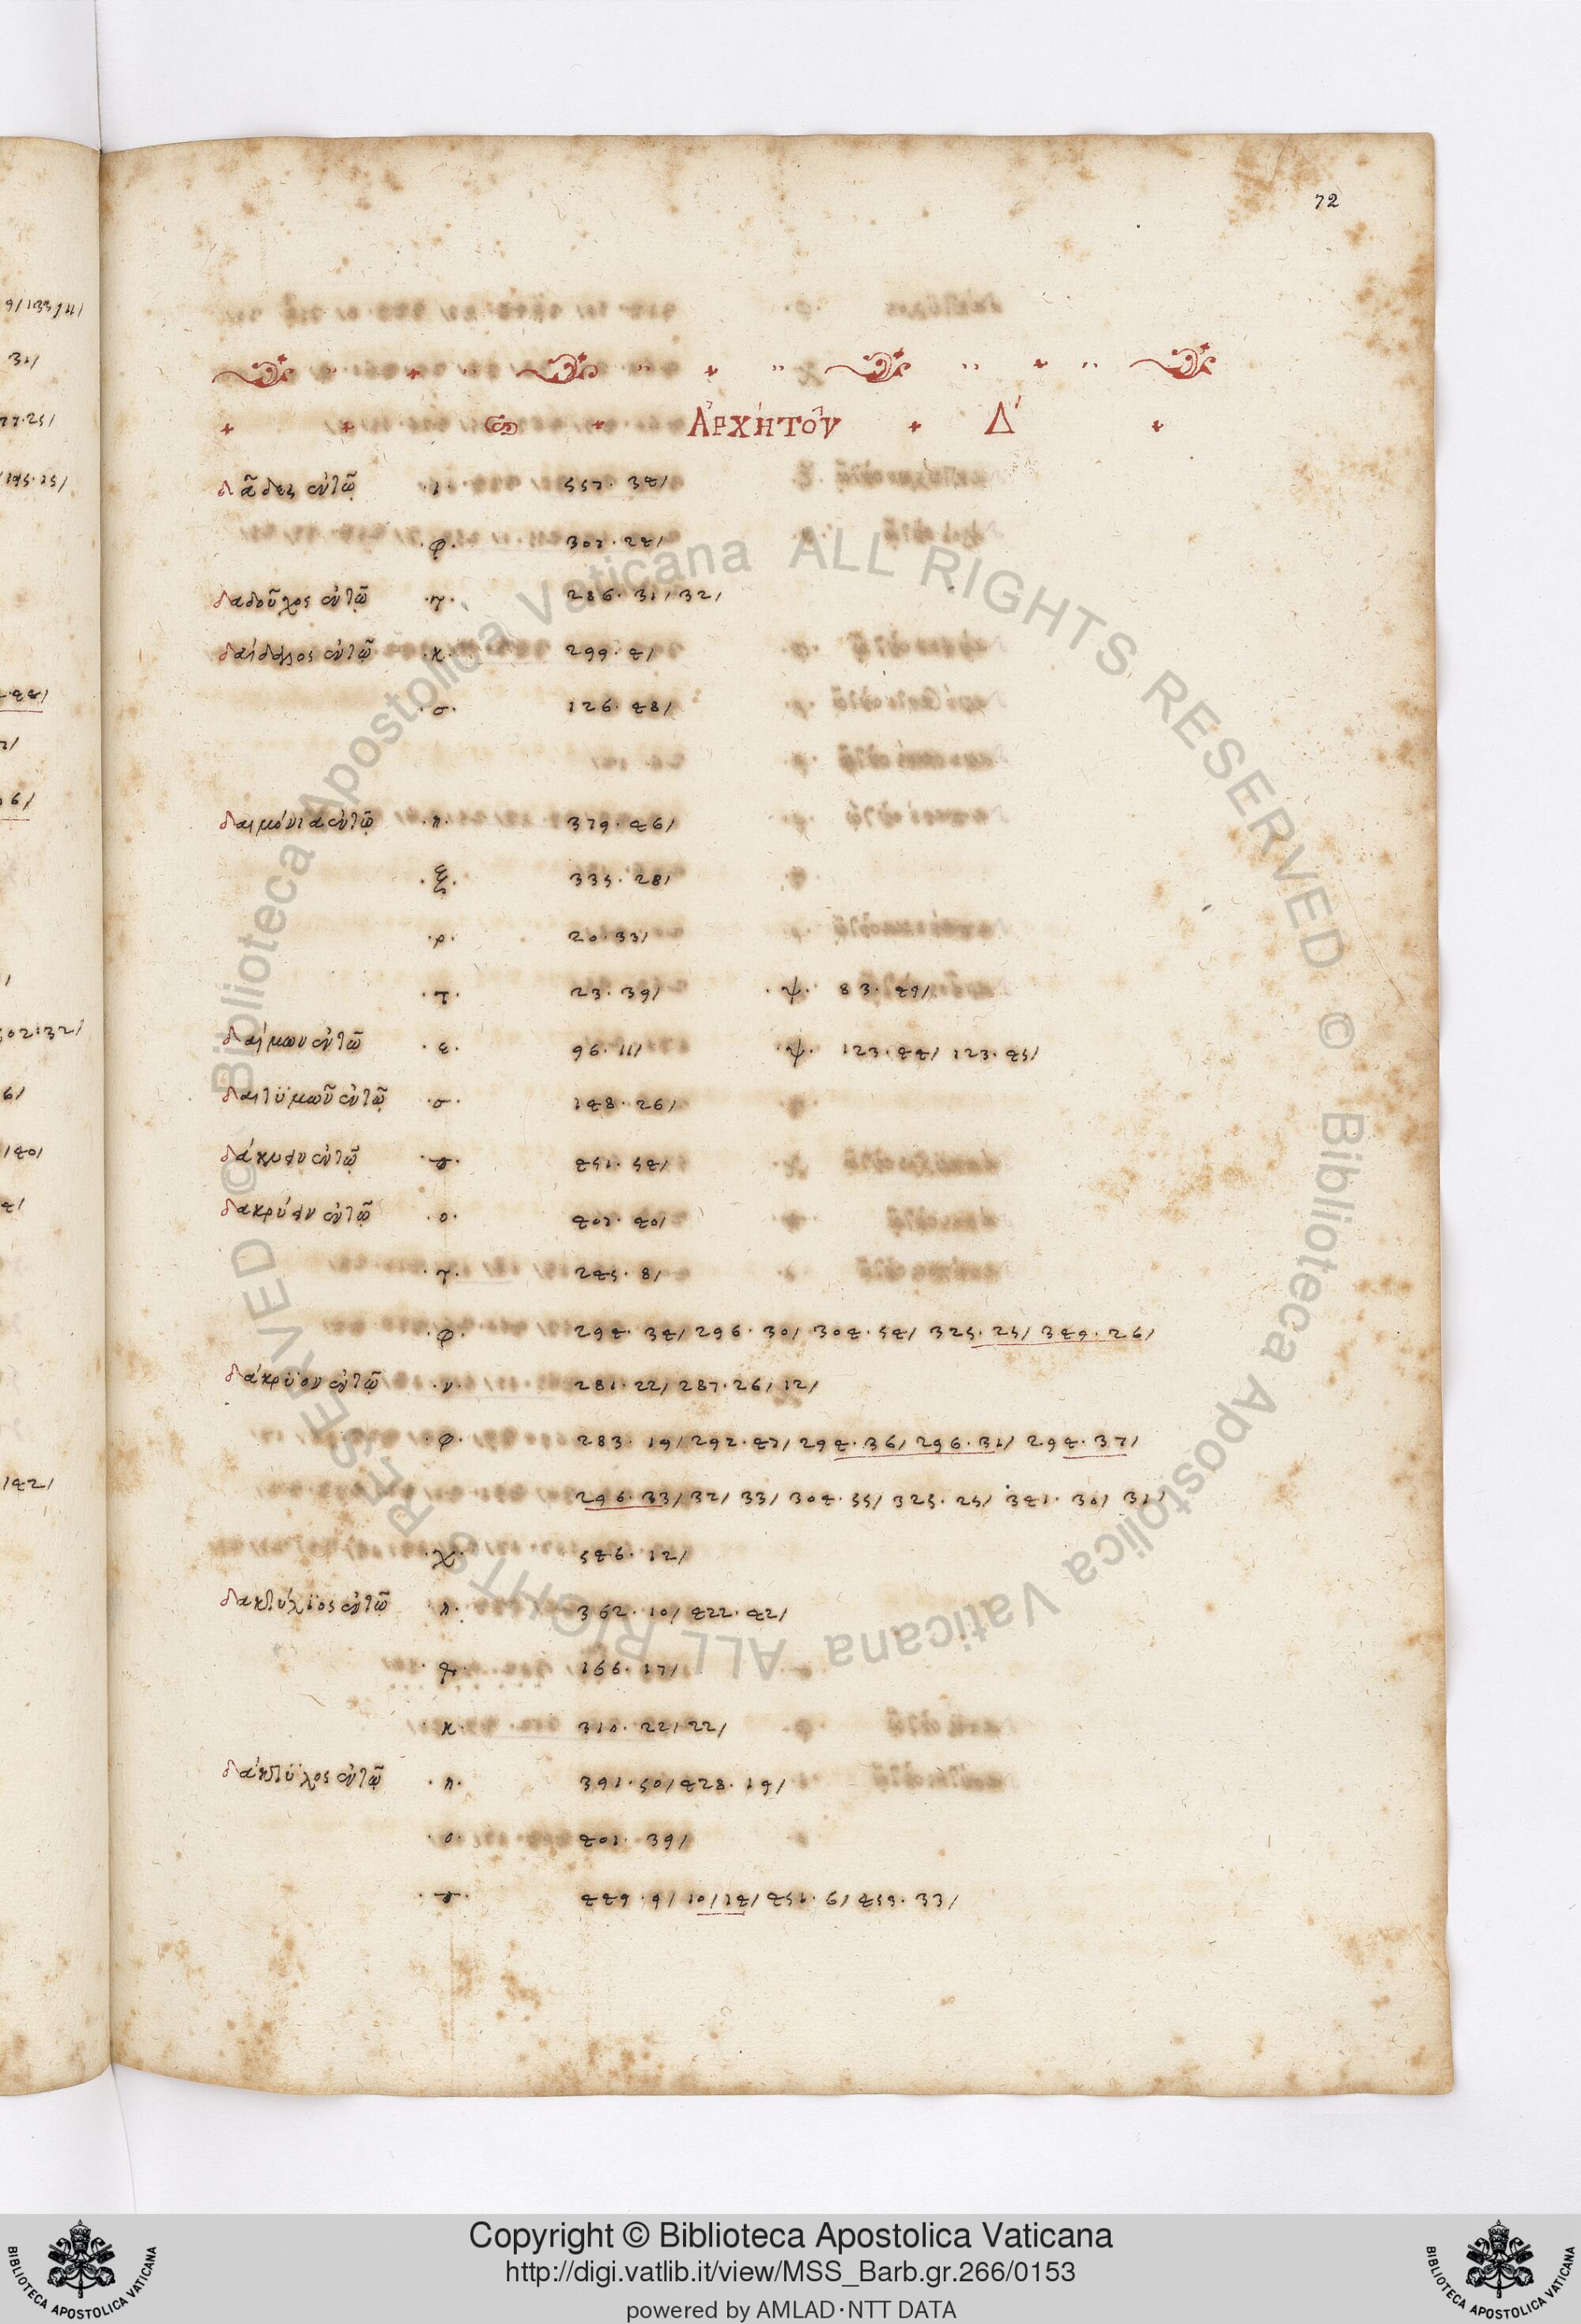 72
Ἀρχὴ τοῦ Δ´
δᾶδες ἐν τῷ ·ι· 557· 34/
·φ· 301· 24/
δαδοῦχος ἐν τῷ ·γ· 286· 31/32/
δαίδαλος ἐν τῷ ·κ· 299· 4/
·σ· 126· 48/
δαιμόνια ἐν τῷ ·η· 379· 46/
·ξ· 335· 28/
·ρ· 20·33/
·τ· 23· 39/ ·ψ· 83· 49/
δαίμων ἐν τῷ ·ε· 96· 11/ ·ψ· 123·44/ 123·45/
δαιτϋμὼν ἐν τῷ ·σ· 148· 26/
δάκνειν ἐν τῷ 451· 54/
δακρύειν ἐν τῷ ·ο· 401· 40/
·γ· 245· 8/
·φ· 294· 34/ 296· 30/ 304· 54/ 325· 25/ 349· 26/
δάκρϋον ἐν τῷ ·ν· 281·22/ 287·26/12/
·φ· 283· 19/ 292·47/ 294·36/ 296·31/ 294·37/
296·33/32/ 33/ 304·55/ 325·25/ 341·30/ 31/
·χ· 546·12/
δακτύλϊος ἐν τῷ ·η· 362·10/ 422·42/
166·17/
·κ· 310·22/22/
δάκτϋλος ἐν τῷ ·η· 391·50/ 428·19/
·ο· 401· 39/
449·9/ 10/14/ 451·6/ 453·33/
9/133/41/
31/
77·25/
/145·15/
·44/
6/
502:32/
6/
/40/
4/
/42/
© Biblioteca Apostolica Vaticana ALL RIGHTS RESERVED © Biblioteca Apostolica Vaticana ALL RIGHTS RESERVED
Copyright © Biblioteca Apostolica Vaticana
http://digi.vatlib.it/view/MSS_Barb.gr.266/0153
powered by AMLAD·NTT DATA
BIBLIOTECA APOSTOLICA VATICANA
BIBLIOTECA APOSTOLICA VATICANA